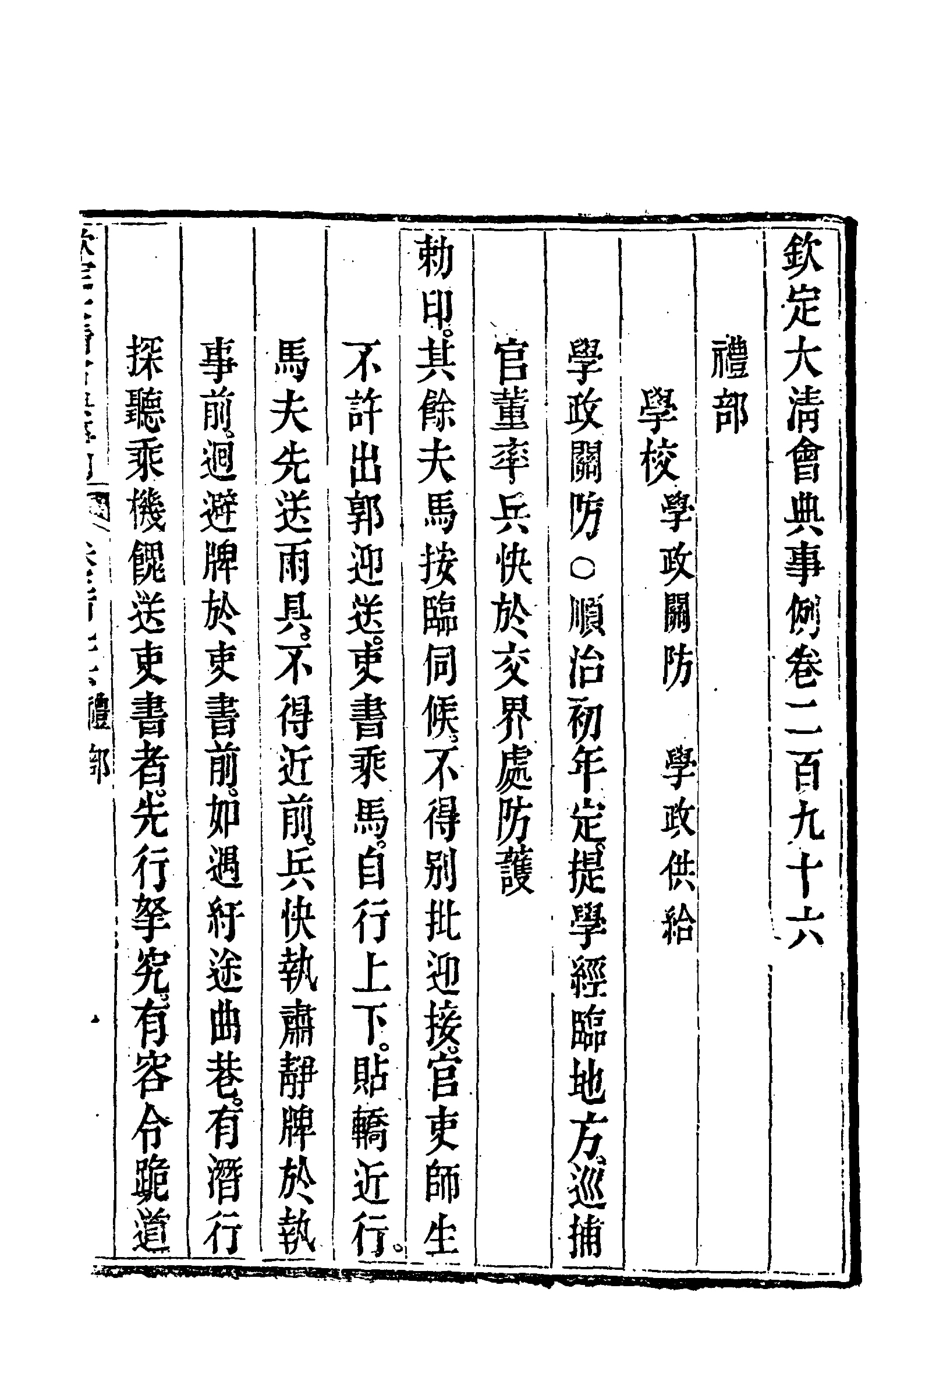 欽定大清會典事例卷二百九十六
禮部
學校 學政關防 學政供給
學政關防○順治初年定。提學經臨地方。巡捕
官董率兵快於交界處防護
勅印。其餘夫馬按臨伺候。不得別批迎接。官吏師生
不許出郭迎送。吏書乘馬。自行上下。貼轎近行。
馬夫先送雨具。不得近前。兵快執肅靜牌於執
事前。迴避牌於吏書前。如遇紆途曲巷。有潛行
探聽乘機餽送吏書者。先行拏究。有容令跪道
禮部